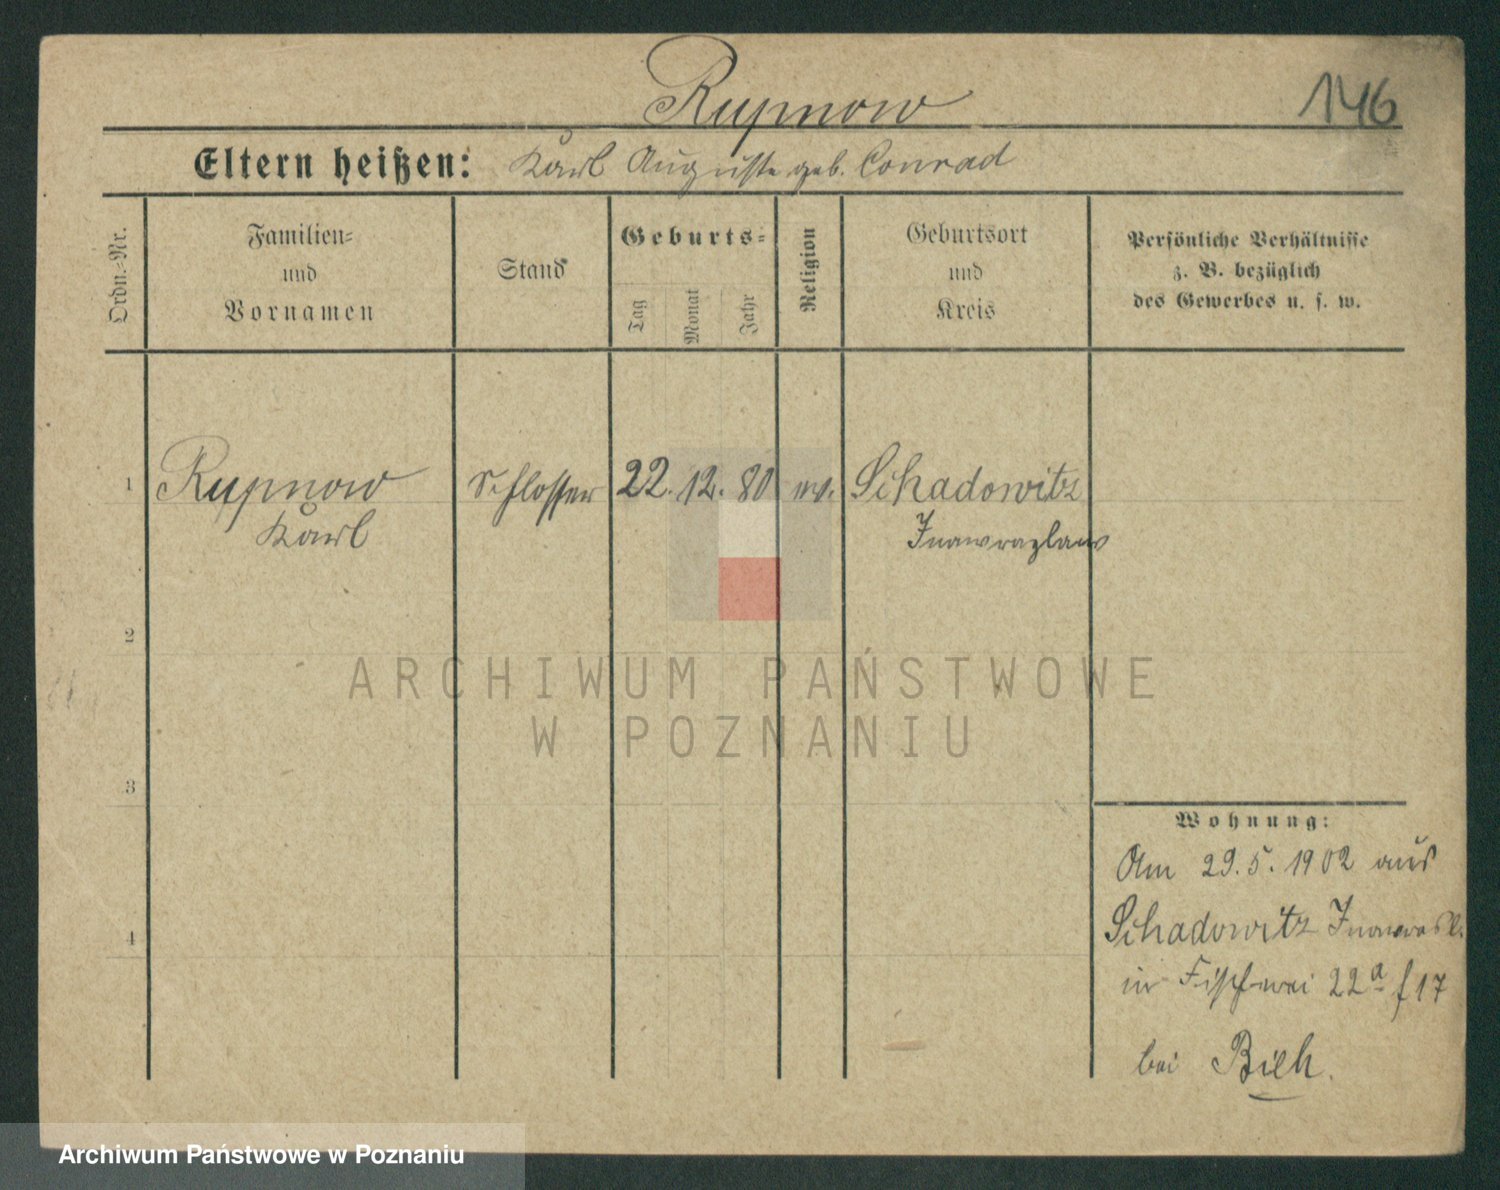 Rypnow
146
Eltern heißen: Karl Auguste geb. Conrad
Ordn.-Nr.
Familien-
und
Vornamen
Stand
Geburts-
Tag
Monat
Jahr
Religion
Geburtsort
und
Kreis
Persönliche Verhältnisse
z. B. bezüglich
des Gewerbes u. s. w.
1 Rypnow Schlosser 22. 12. 80 ev. Schadowitz
Karl Inowrazlaw
2
3
4
Wohnung:
Am 29.5.1902 aus
Schadowitz Inowrasl.
in Fischerei 22a f 17
bei Bieh.
ARCHIWUM PAŃSTWOWE
W POZNANIU
Archiwum Państwowe w Poznaniu